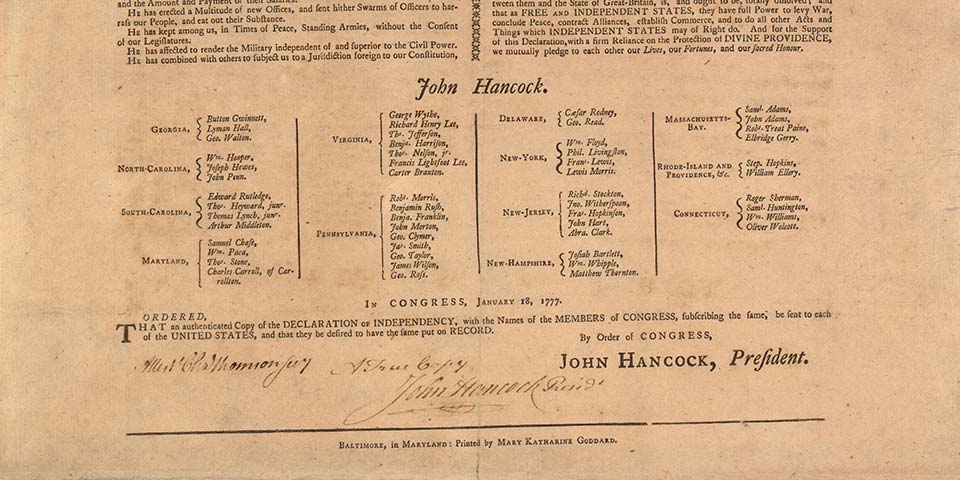 and the Amount and Payment of their Salaries.
HE has erected a Multitude of new Offices, and sent hither Swarms of Officers to har-
rass our People, and eat out their Substance.
HE has kept among us, in Times of Peace, Standing Armies, without the Consent
of our Legislatures.
HE has affected to render the Military independent of and superior to the Civil Power.
HE has combined with others to subject us to a Jurisdiction foreign to our Constitution,
tween them and the State of Great-Britain, is, and ought to be, totally dissolved; and
that as FREE AND INDEPENDENT STATES, they have full Power to levy War,
conclude Peace, contract Alliances, establish Commerce, and to do all other Acts and
Things which INDEPENDENT STATES may of Right do. And for the Support
of this Declaration, with a firm Reliance on the Protection of DIVINE PROVIDENCE,
we mutually pledge to each other our Lives, our Fortunes, and our sacred Honour.
John Hancock.
GEORGIA,
Button Gwinnett,
Lyman Hall,
Geo. Walton.
NORTH-CAROLINA,
Wm. Hooper,
Joseph Hewes,
John Penn.
SOUTH-CAROLINA,
Edward Rutledge,
Thos. Heyward, junr.
Thomas Lynch, junr.
Arthur Middleton.
MARYLAND,
Samuel Chase,
Wm. Paca,
Thos. Stone,
Charles Carroll, of Car-
rollton.
VIRGINIA,
George Wythe,
Richard Henry Lee,
Ths. Jefferson,
Benja. Harrison,
Thos. Nelson, jr.
Francis Lightfoot Lee,
Carter Braxton.
PENNSYLVANIA,
Robt. Morris,
Benjamin Rush,
Benja. Franklin,
John Morton,
Geo. Clymer,
Jas. Smith,
Geo. Taylor,
James Wilson,
Geo. Ross.
DELAWARE,
Cæsar Rodney,
Geo. Read.
NEW-YORK,
Wm. Floyd,
Phil. Livingston,
Frans. Lewis,
Lewis Morris.
NEW-JERSEY,
Richd. Stockton,
Jno. Witherspoon,
Fras. Hopkinson,
John Hart,
Abra. Clark.
NEW-HAMPSHIRE,
Josiah Bartlett,
Wm. Whipple,
Matthew Thornton.
MASSACHUSETTS-
BAY.
Saml. Adams,
John Adams,
Robt. Treat Paine,
Elbridge Gerry.
RHODE-ISLAND AND
PROVIDENCE, &c.
Step. Hopkins,
William Ellery.
CONNECTICUT,
Roger Sherman,
Saml. Huntington,
Wm. Williams,
Oliver Wolcott.
IN CONGRESS, JANUARY 18, 1777.
ORDERED,
THAT an authenticated Copy of the DECLARATION OF INDEPENDENCY, with the Names of the MEMBERS of CONGRESS, subscribing the same, be sent to each
of the UNITED STATES, and that they be desired to have the same put on RECORD.
By Order of CONGRESS,
JOHN HANCOCK, President.
Attest Cha Thomson secy
A True Copy
John Hancock Presidt
BALTIMORE, in MARYLAND: Printed by MARY KATHARINE GODDARD.